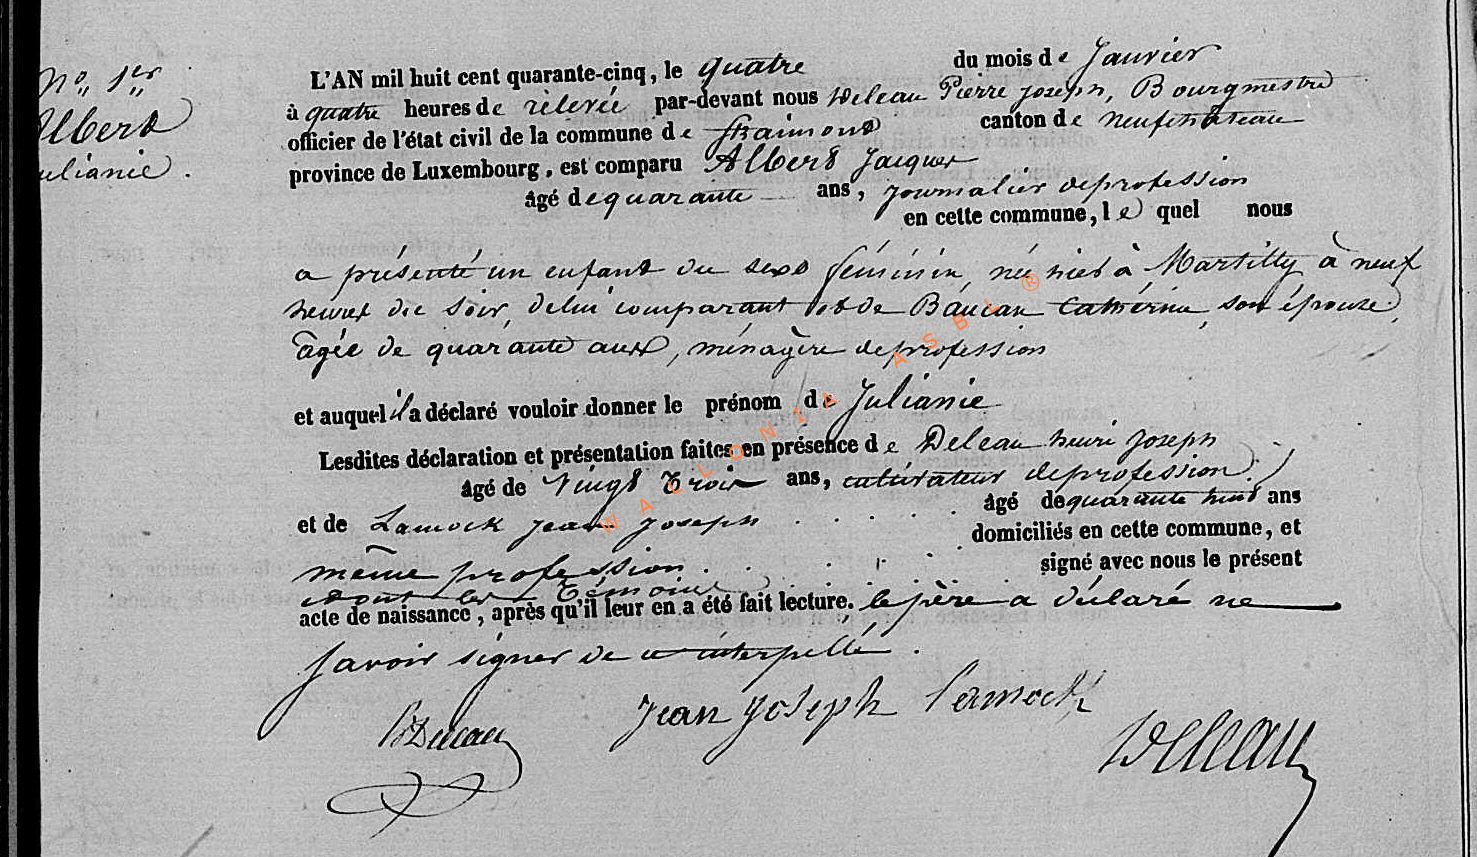 N° 1er
Albert
Julianie.
L'AN mil huit cent quarante-cinq, le quatre du mois de Janvier
à quatre heures de rélevée par-devant nous Deleau Pierre Joseph, Bourgmestre
officier de l'état civil de la commune de Straimont canton de neufchateau
province de Luxembourg, est comparu Albert Jacques
âgé de quarante ans, journalier de profession
en cette commune, le quel nous
a présenté un enfant du sexe féminin, né hier à Martilly à neuf
heures du soir, de lui comparant et de Baucan Cathérine, son épouse,
agée de quarante ans, ménagère de profession
et auquel il a déclaré vouloir donner le prénom de Julianie
Lesdites déclaration et présentation faites en présence de Deleau henri Joseph
âgé de Vingt Trois ans, cultivateur de profession.
et de Lamock Jean Joseph âgé de quarante huit ans
domiciliés en cette commune, et
même profession signé avec nous le présent
dont les Témoins
acte de naissance, après qu'il leur en a été fait lecture. le père a déclaré ne
savoir signer de ce interpellé.
Jean Joseph Lamock
HDeleau
Deleau
WALLONIA ASBL ®